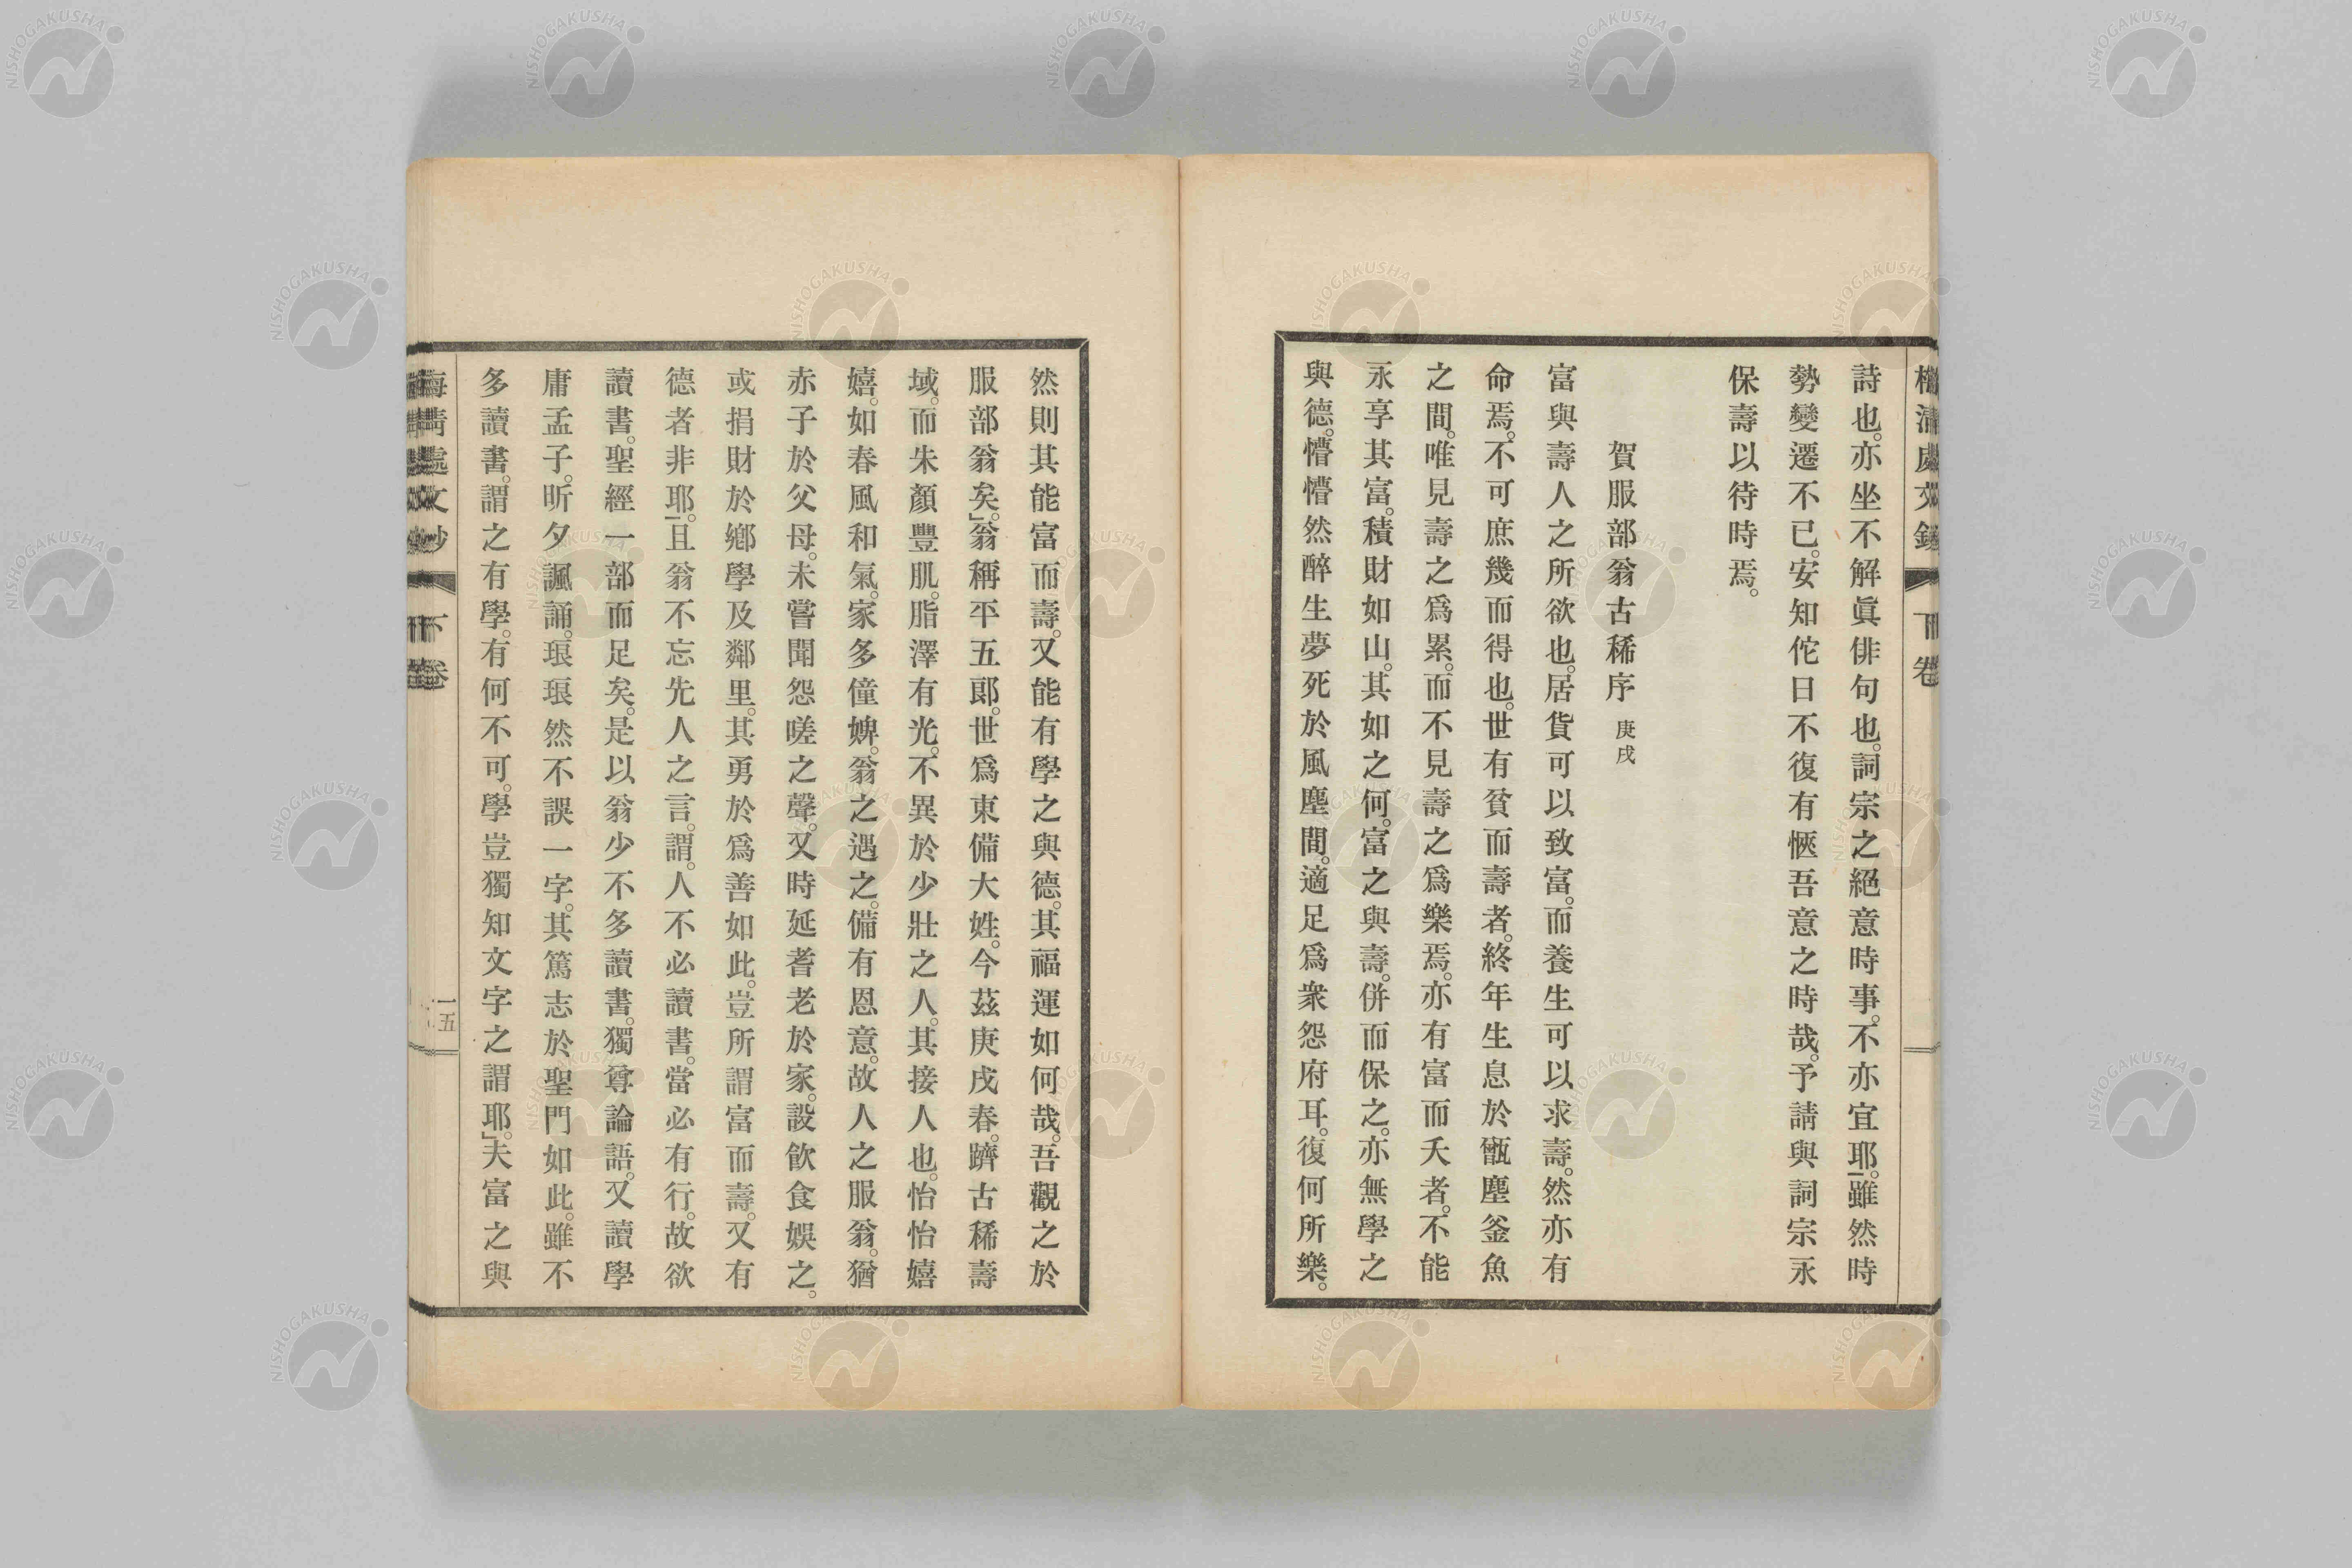 詩也。亦坐不解眞俳句也。詞宗之絕意時事。不亦宜耶。雖然時
勢變遷不已。安知佗日不復有愜吾意之時哉。予請與詞宗永
保壽以待時焉。
賀服部翁古稀序 庚戌
富與壽人之所欲也。居貨可以致富。而養生可以求壽。然亦有
命焉。不可庶幾而得也。世有貧而壽者。終年生息於甑塵釜魚
之間。唯見壽之爲累。而不見壽之爲樂焉。亦有富而夭者。不能
永享其富。積財如山。其如之何。富之與壽。併而保之。亦無學之
與德。懵懵然醉生夢死於風塵間。適足爲衆怨府耳。復何所樂。
然則其能富而壽。又能有學之與德。其福運如何哉。吾觀之於
服部翁矣。」翁稱平五郎。世爲東備大姓。今茲庚戌春。躋古稀壽
域。而朱顏豐肌。脂澤有光。不異於少壯之人。其接人也。怡怡嬉
嬉。如春風和氣。家多僮婢。翁之遇之。備有恩意。故人之服翁。猶
赤子於父母。未嘗聞怨嗟之聲。又時延耆老於家。設飮食娛之。
或捐財於鄕學及鄰里。其勇於爲善如此。豈所謂富而壽。又有
德者非耶。」且翁不忘先人之言。謂。人不必讀書。當必有行。故欲
讀書。聖經一部而足矣。是以翁少不多讀書。獨尊論語。又讀學
庸孟子。昕夕諷誦。琅琅然不誤一字。其篤志於聖門如此。雖不
多讀書。謂之有學。有何不可。學豈獨知文字之謂耶。」夫富之與
梅清處文鈔 下卷
一五